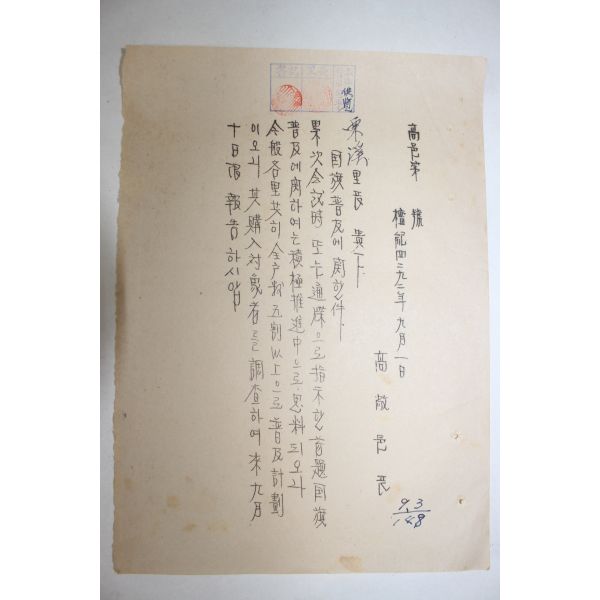 高邑第 號
檀紀四二九二年 九月 一日
高敞邑長
栗溪里長 貴下
国旗普及에関한件
累次会議時 또는通牒으로指示한首題国旗
普及에関하여는積極推進中으로思料되오나
今般各里共히全戶數五割以上으로普及計劃
이오니 其購入対象者를調査하여 来九月
十日限 報告하시압
供覽
9.3
148